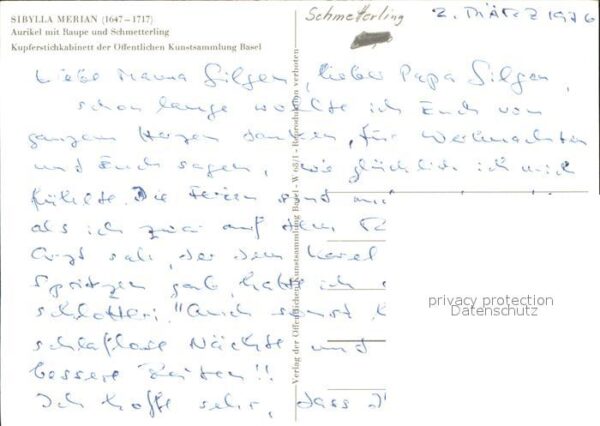 SIBYLLA MERIAN (1647–1717)
Aurikel mit Raupe und Schmetterling
Kupferstichkabinett der Öffentlichen Kunstsammlung Basel
Schmetterling
2. März 1976
Liebe Mama Gilgen, lieber Papa Gilgen,
schon lange wollte ich Euch von
ganzem Herzen danken, für Weihnachten
und Euch sagen, wie glücklich ich mich
fühlte. Die Ferien sind
als ich zwei auf dem
Arzt sah, der dem
Spritzen gab, hatte ich
schlotteri. Auch sonst
schlaflose Nächte und
bessere Zeiten!!
Ich hoffe sehr, dass
Verlag der Öffentlichen Kunstsammlung Basel - W 63/1 - Reproduktion verboten
privacy protection
Datenschutz